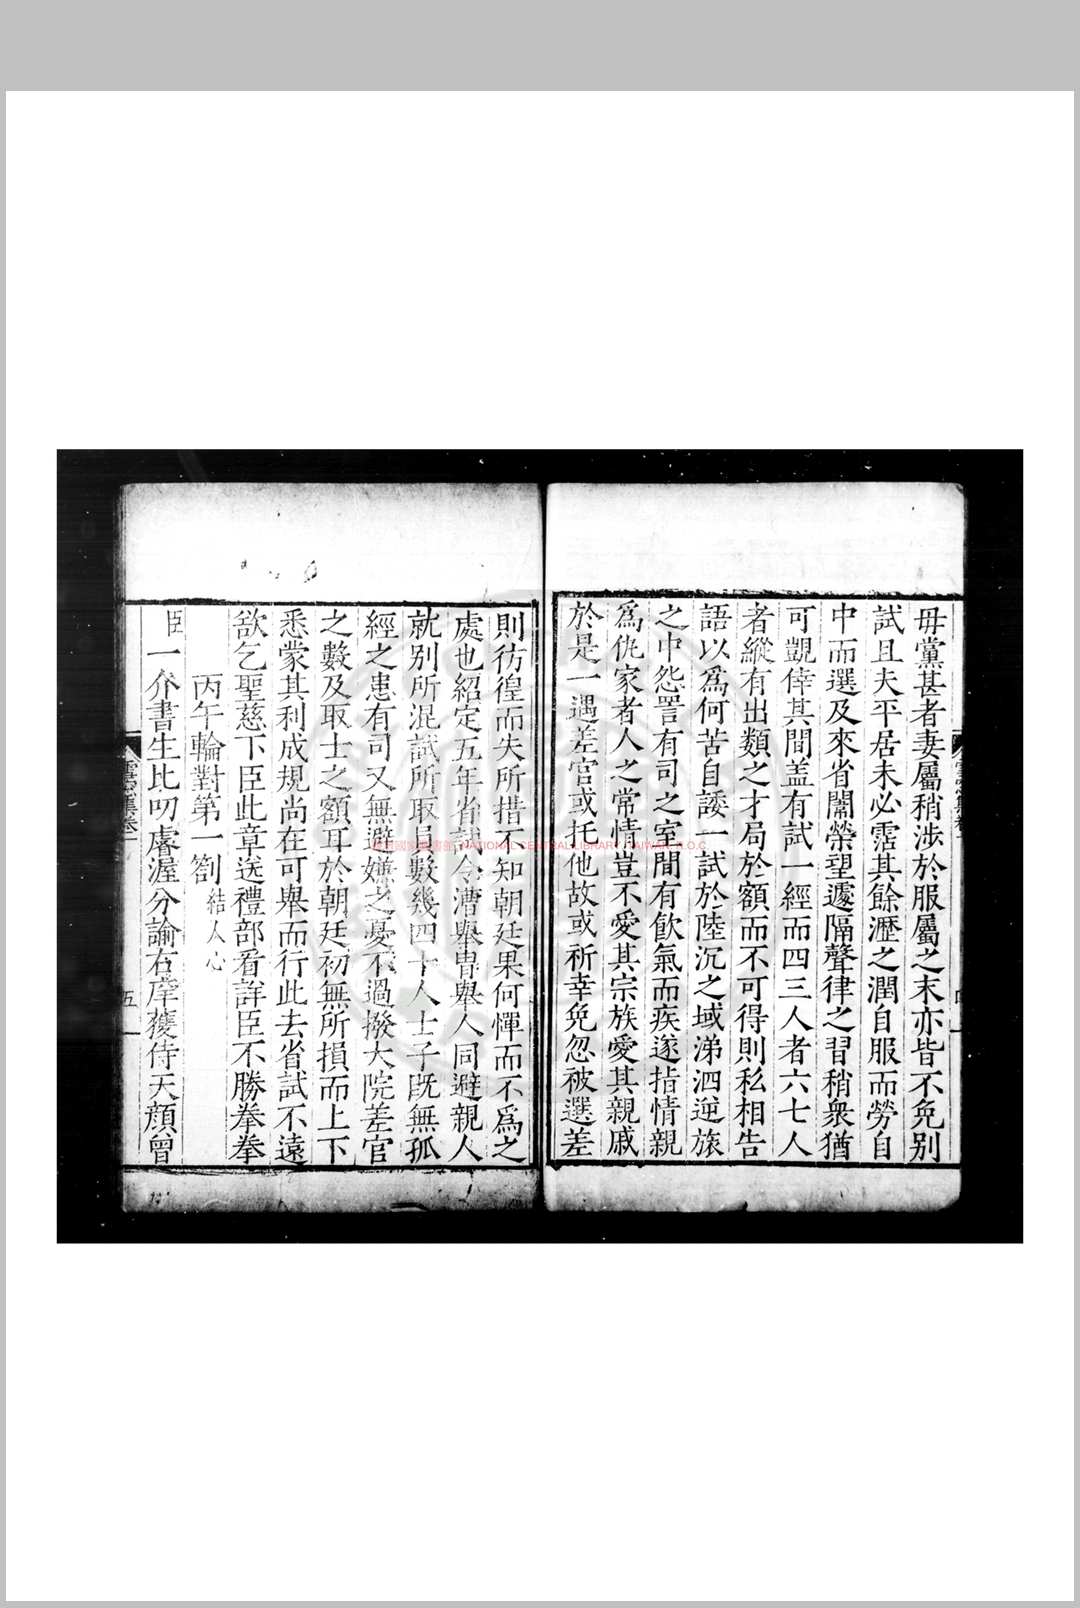 毋黨甚者妻屬稍涉於服屬之末亦皆不免別
試且夫平居未必霑其餘瀝之潤自服而勞自
中而選及來省闈榮望遽隔聲律之習稍衆猶
可覬倖其間盖有試一經而四三人者六七人
者縱有出類之才局於額而不可得則私相告
語以爲何苦自諉一試於陸沉之域涕泗逆旅
之中怨詈有司之室間有飲氣而疾遂指情親
爲仇家者人之常情豈不愛其宗族愛其親戚
於是一遇差官或托他故或祈幸免忽被選差
則彷徨而失所措不知朝廷果何憚而不爲之
處也紹定五年省試令漕舉冑舉人同避親人
就別所混試所取員數幾四十人士子旣無孤
經之患有司又無避嫌之憂不過撥大院差官
之數及取士之額耳於朝廷初無所損而上下
悉蒙其利成規尚在可舉而行此去省試不遠
欲乞聖慈下臣此章送禮部看詳臣不勝拳拳
丙午輪對第一劄 結人心
臣一介書生比叨睿渥分論右庠獲侍天顏曾
五
國家圖書館 NATIONAL CENTRAL LIBRARY,TAIWAN,R.O.C